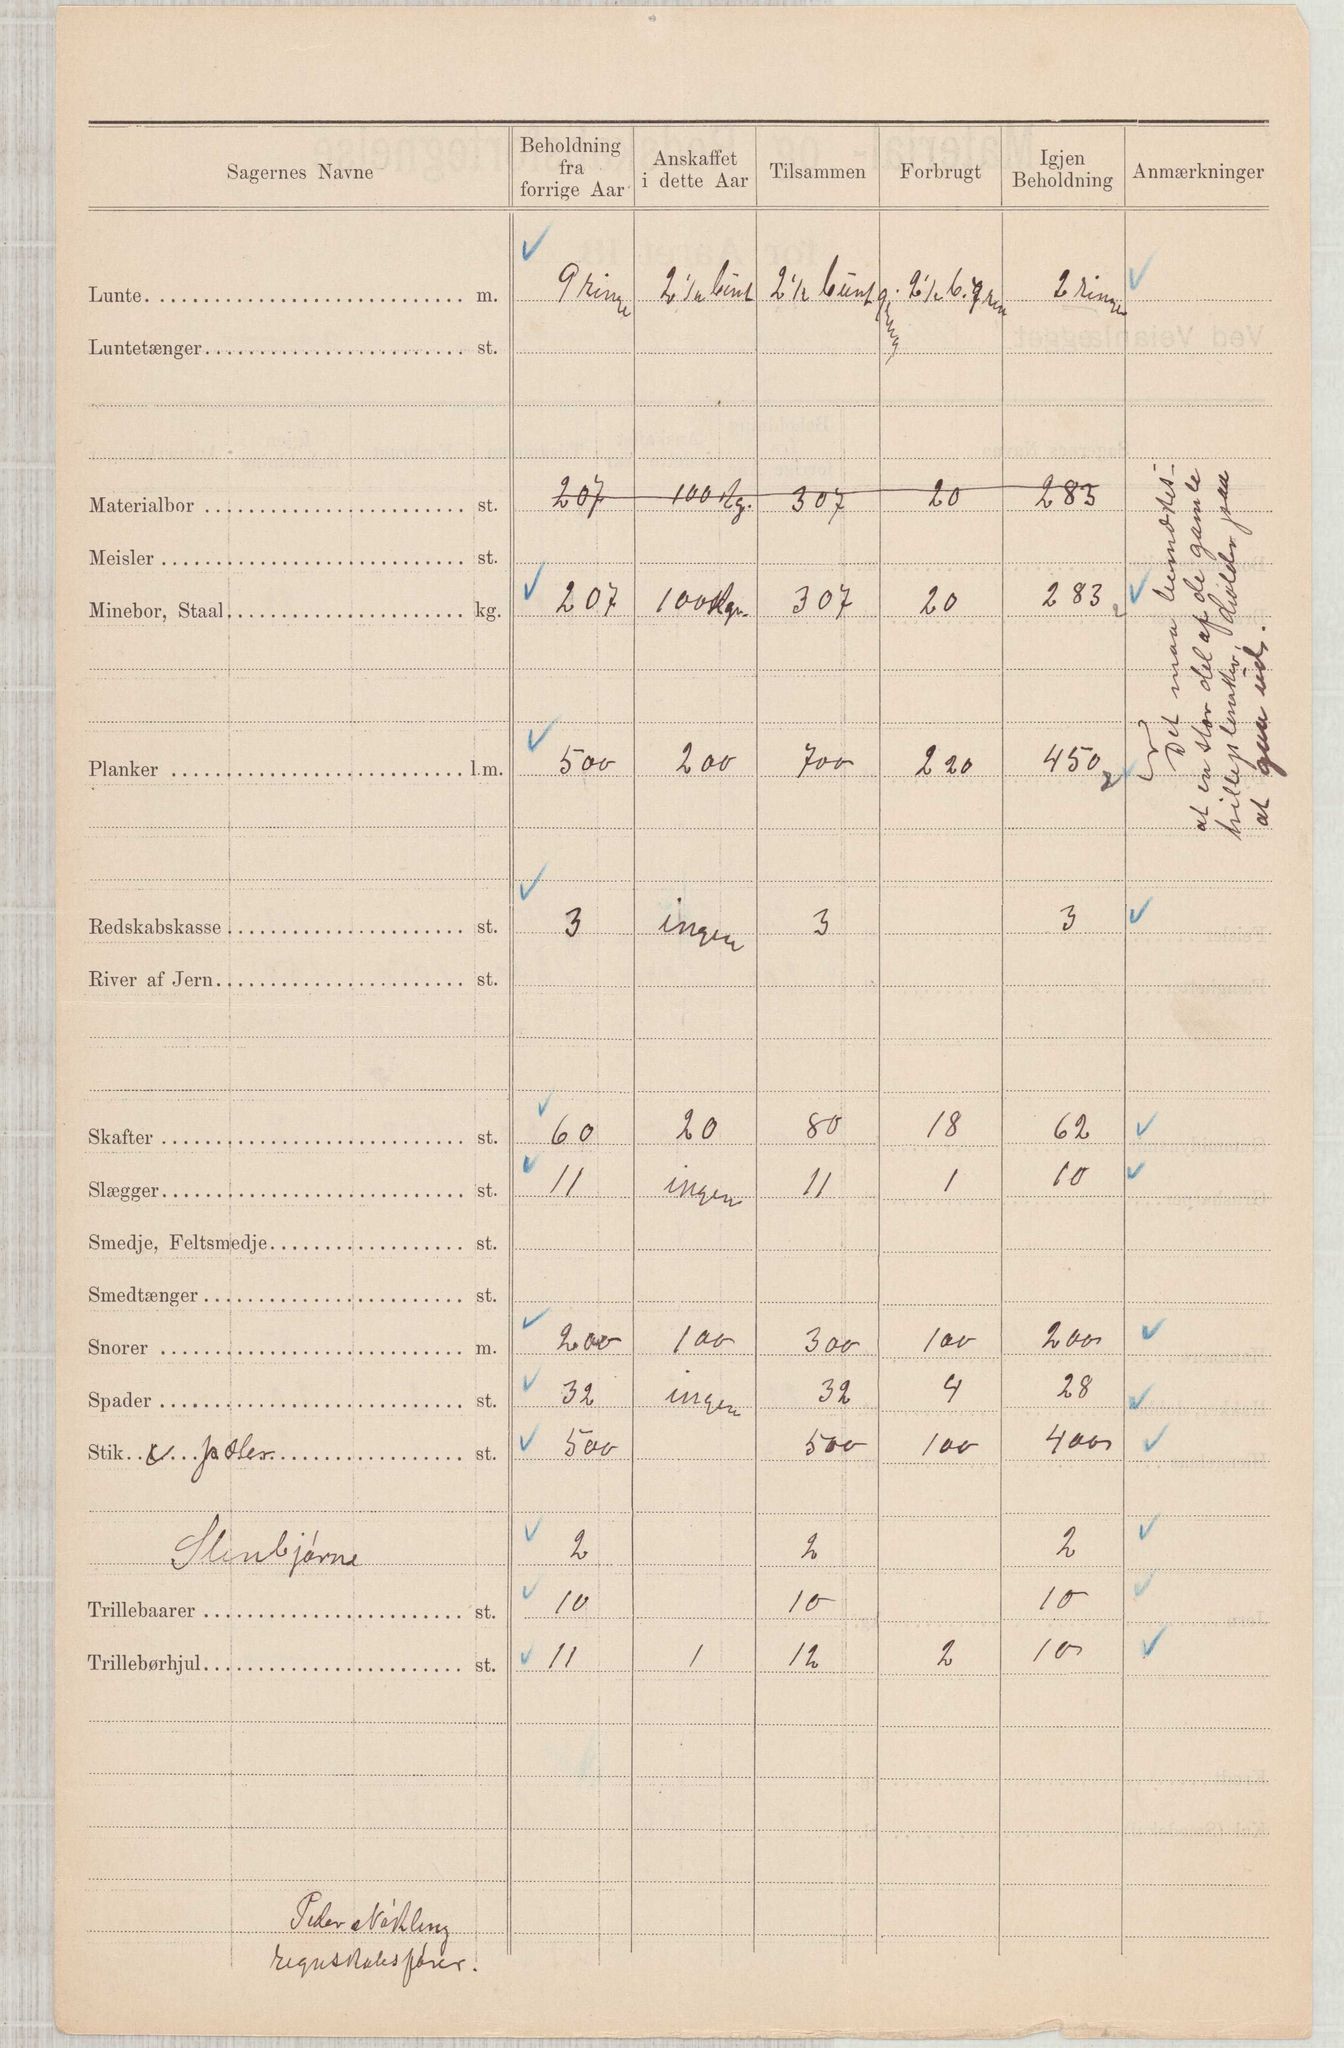 Sagernes Navne | Beholdning fra forrige Aar | Anskaffet i dette Aar | Tilsammen | Forbrugt | Igjen Beholdning | Anmærkninger
Lunte m. | 9 ringe | 2 1/2 bunt | 2 1/2 bunt 9 | 2 1/2 b. 9 | 2 ringe
Luntetænger st.
Materialbor st. | 207 | 100 kg. | 307 | 20 | 283
Meisler st.
Minebor, Staal kg. | 207 | 100 kgr. | 307 | 20 | 283
Planker l.m. | 500 | 200 | 700 | 220 | 450
Det maa bemærkes
at en stor del af de gamle
trilleplanker holder paa
at gaa ud.
Redskabskasse st. | 3 | ingen | 3 | | 3
River af Jern st.
Skafter st. | 60 | 20 | 80 | 18 | 62
Slægger st. | 11 | ingen | 11 | 1 | 10
Smedje, Feltsmedje st.
Smedtænger st.
Snorer m. | 200 | 100 | 300 | 100 | 200
Spader st. | 32 | ingen | 32 | 4 | 28
Stik & pæler st. | 500 | | 500 | 100 | 400
Stenbjørne | 2 | | 2 | | 2
Trillebaarer st. | 10 | | 10 | | 10
Trillebørhjul st. | 11 | 1 | 12 | 2 | 10
Peder Nøkleng
regnskabsfører.